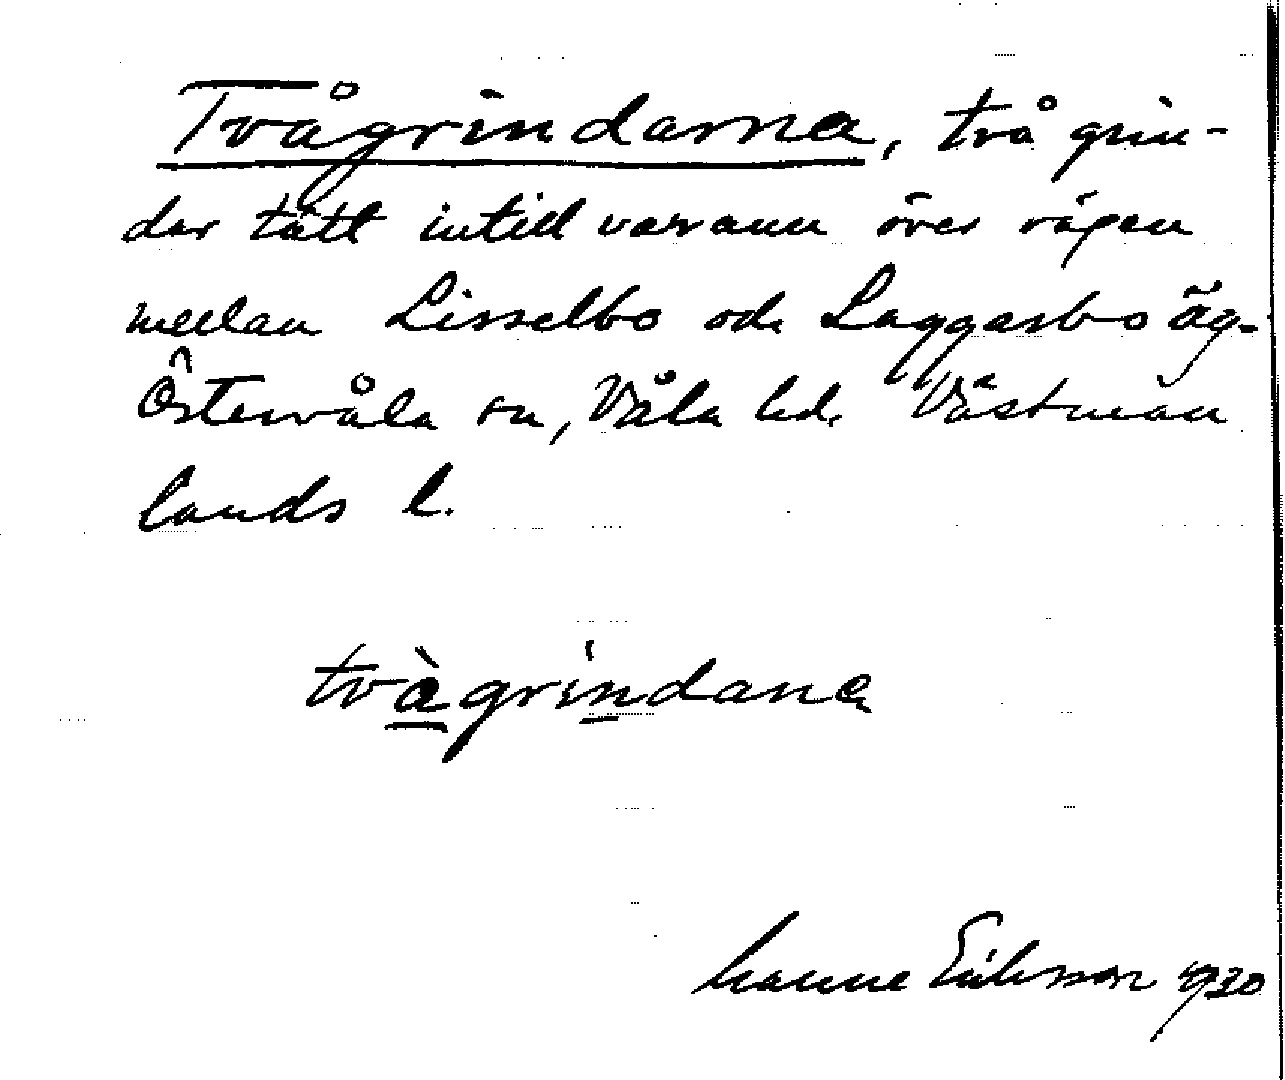 Tvågrindarna, två grin-
dar tätt intill varann över vägen
mellan Lisselbo och Laggarbo äg.
Östervåla sn, Våla hd. Västman
lands l.
tvàgrindana
Manne Eriksson 1930